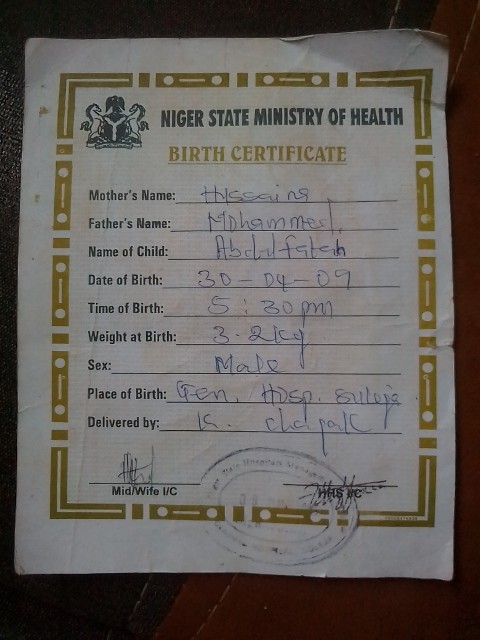 NIGER STATE MINISTRY OF HEALTH
BIRTH CERTIFICATE
Mother's Name: Hussaina
Father's Name: Mohammed
Name of Child: Abdulfatah
Date of Birth: 30-04-09
Time of Birth: 5:30pm
Weight at Birth: 3.2kg
Sex: Male
Place of Birth: Gen. Hosp. Suleja
Delivered by: K.
Mid/Wife I/C HHS I/C